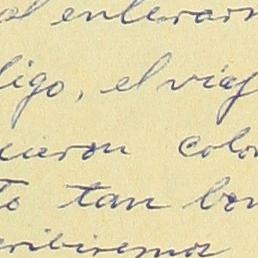 al enterarn
ligo, el viaj
ieron color
to tan bon
cribiremos